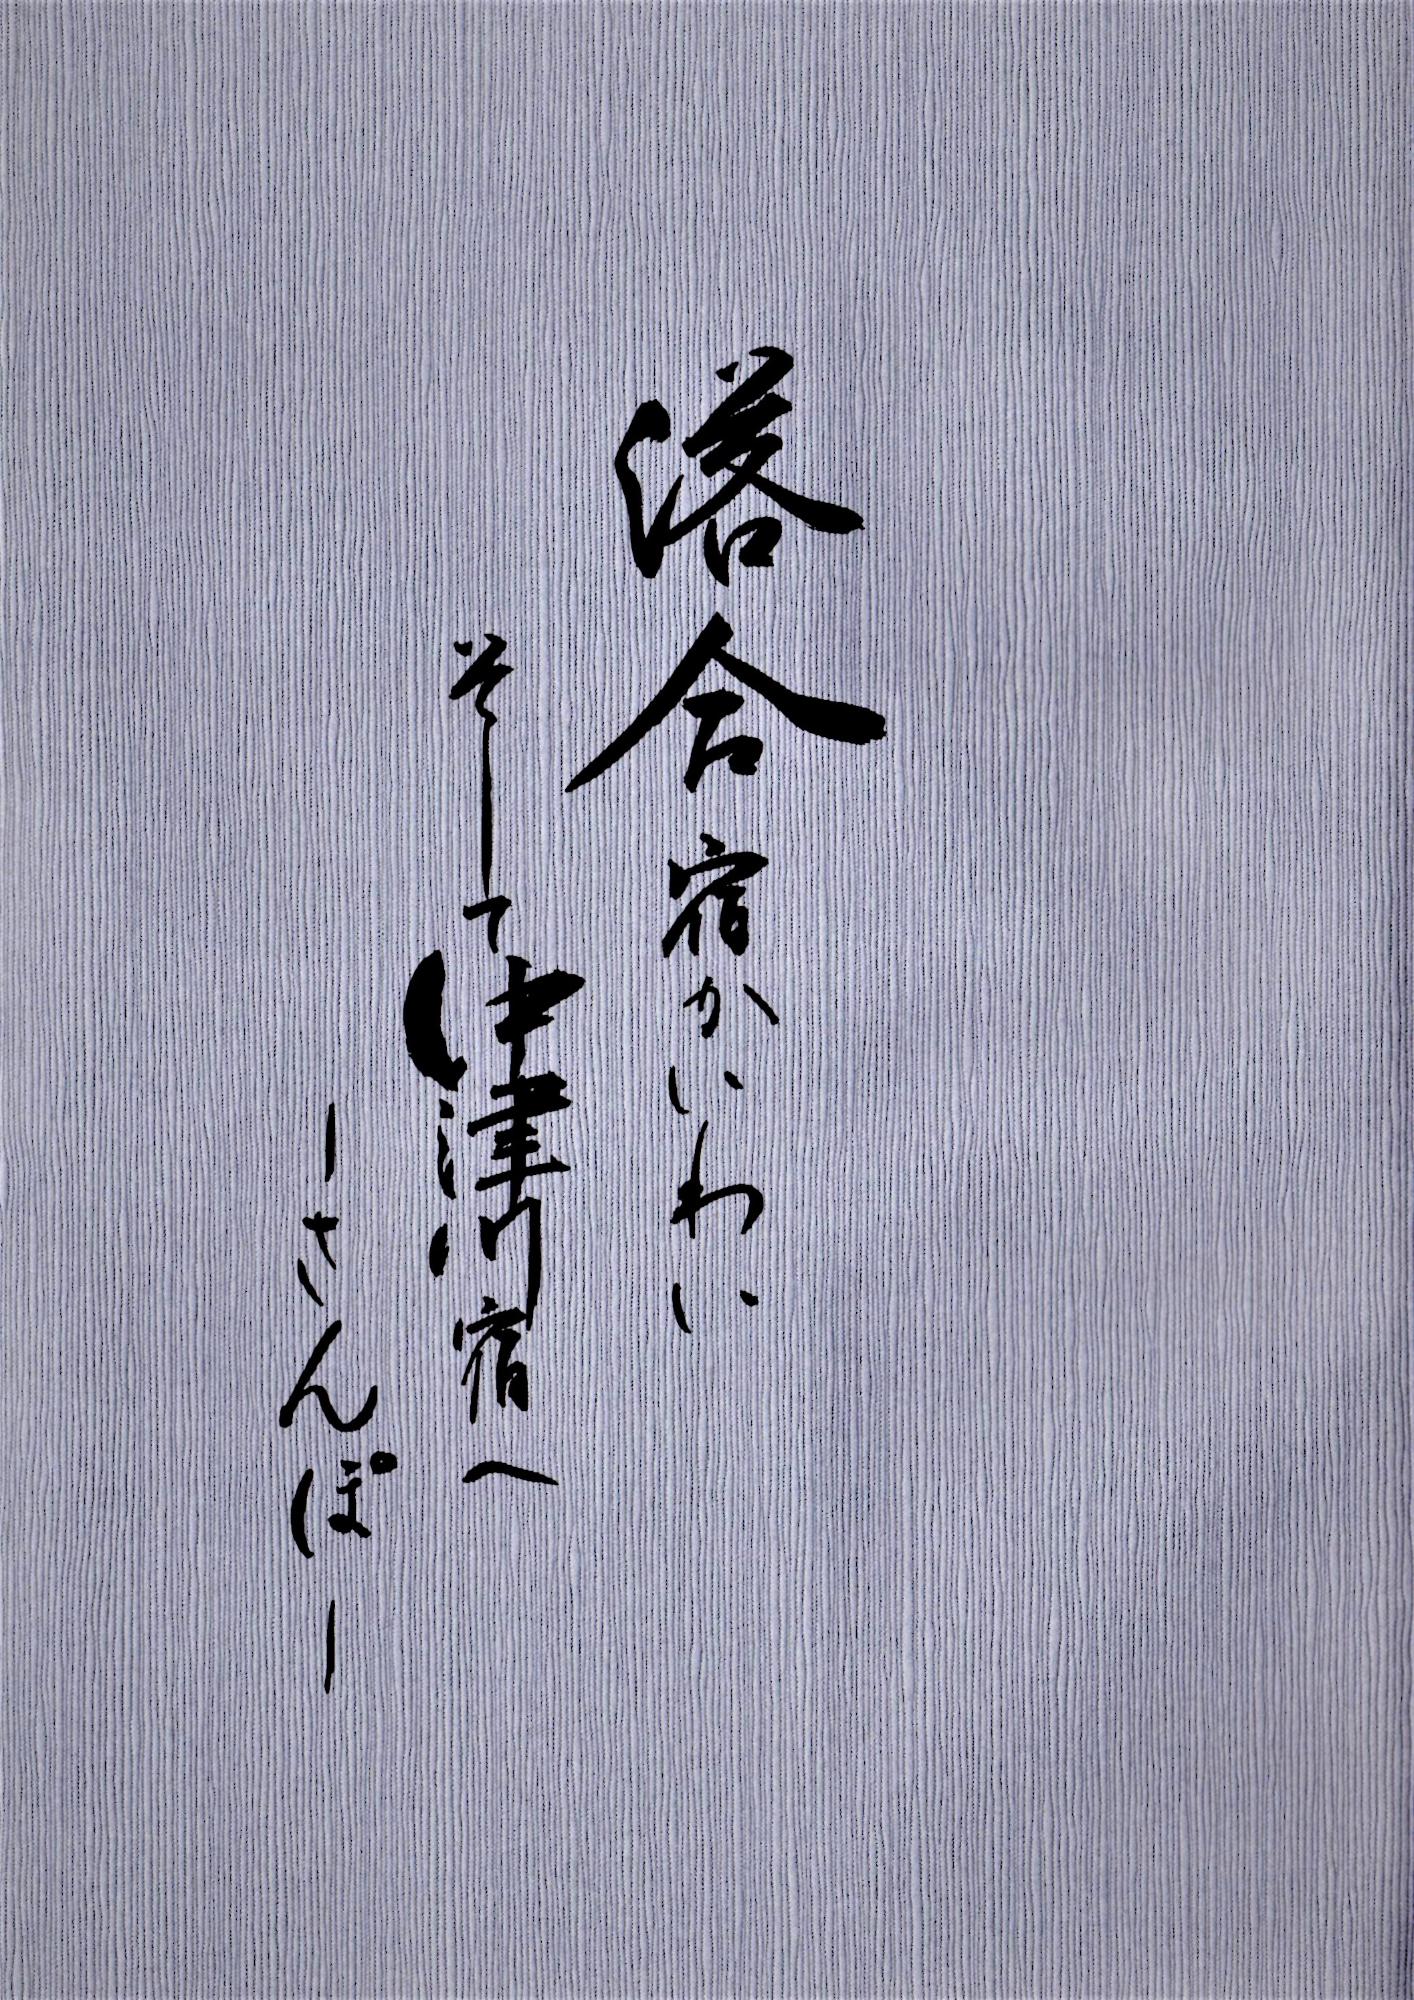 落合宿かいわい
そして中津川宿へ
ーさんぽー